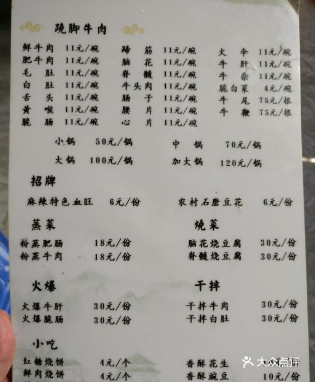 跷脚牛肉
鲜牛肉 11元/碗 蹄筋 11元/碗 火伞 11元/碗
肥牛肉 11元/碗 脑花 11元/碗 牛肝 11元/碗
毛肚 11元/碗 脊髓 11元/碗 牛杂 11元/碗
白肚 11元/碗 牛头肉 11元/碗 脆白菜 4元/碗
舌头 11元/碗 肠子 11元/碗 牛尾 75元/根
黄喉 11元/碗 腰片 11元/碗 牛鞭 75元/根
脆肠 11元/碗 心片 11元/碗
小锅 50元/锅 中锅 70元/锅
大锅 100元/锅 加大锅 120元/锅
招牌
麻辣特色血旺 6元/份 农村石磨豆花 6元/份
蒸菜 烧菜
粉蒸肥肠 18元/份 脑花烧豆腐 30元/份
粉蒸牛肉 18元/份 脊髓烧豆腐 30元/份
火爆 干拌
火爆牛肝 30元/份 干拌牛肉 30元/份
火爆脆肠 30元/份 干拌白肚 30元/份
小吃
红糖烧饼 4元/个 香酥花生
鲜肉烧饼 4元/个 香酥豌豆 10元/份
大众点评